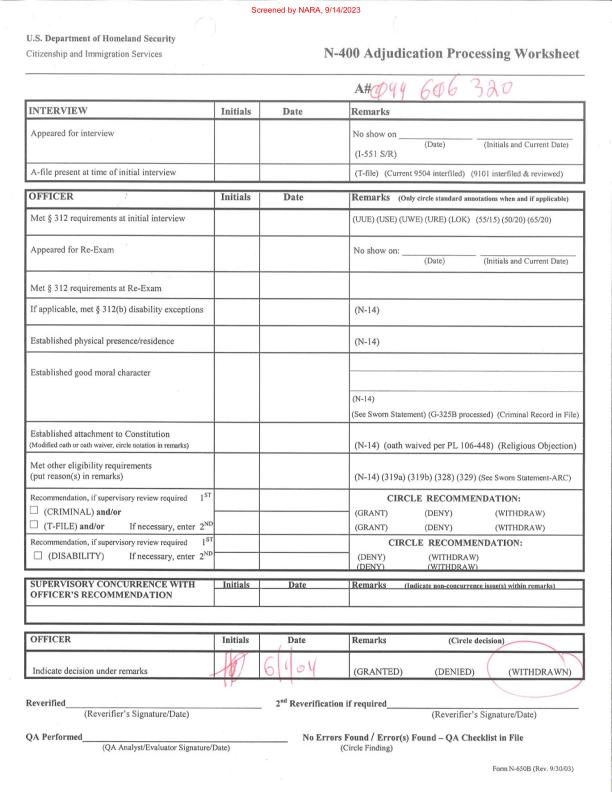 Screened by NARA, 9/14/2023
U.S. Department of Homeland Security
Citizenship and Immigration Services
N-400 Adjudication Processing Worksheet
A# 044 606 320
INTERVIEW Initials Date Remarks
Appeared for interview No show on
(Date) (Initials and Current Date)
(I-551 S/R)
A-file present at time of initial interview (T-file) (Current 9504 interfiled) (9101 interfiled & reviewed)
OFFICER Initials Date Remarks (Only circle standard annotations when and if applicable)
Met § 312 requirements at initial interview (UUE) (USE) (UWE) (URE) (LOK) (55/15) (50/20) (65/20)
Appeared for Re-Exam No show on:
(Date) (Initials and Current Date)
Met § 312 requirements at Re-Exam
If applicable, met § 312(b) disability exceptions (N-14)
Established physical presence/residence (N-14)
Established good moral character
(N-14)
(See Sworn Statement) (G-325B processed) (Criminal Record in File)
Established attachment to Constitution
(Modified oath or oath waiver, circle notation in remarks) (N-14) (oath waived per PL 106-448) (Religious Objection)
Met other eligibility requirements
(put reason(s) in remarks) (N-14) (319a) (319b) (328) (329) (See Sworn Statement-ARC)
Recommendation, if supervisory review required 1ST CIRCLE RECOMMENDATION:
☐ (CRIMINAL) and/or (GRANT) (DENY) (WITHDRAW)
☐ (T-FILE) and/or If necessary, enter 2ND (GRANT) (DENY) (WITHDRAW)
Recommendation, if supervisory review required 1ST CIRCLE RECOMMENDATION:
☐ (DISABILITY) If necessary, enter 2ND (DENY) (WITHDRAW)
(DENY) (WITHDRAW)
SUPERVISORY CONCURRENCE WITH Initials Date Remarks (Indicate non-concurrence issue(s) within remarks)
OFFICER'S RECOMMENDATION
OFFICER Initials Date Remarks (Circle decision)
Indicate decision under remarks 6/1/04 (GRANTED) (DENIED) (WITHDRAWN)
Reverified 2nd Reverification if required
(Reverifier's Signature/Date) (Reverifier's Signature/Date)
QA Performed No Errors Found / Error(s) Found – QA Checklist in File
(QA Analyst/Evaluator Signature/Date) (Circle Finding)
Form N-650B (Rev. 9/30/03)